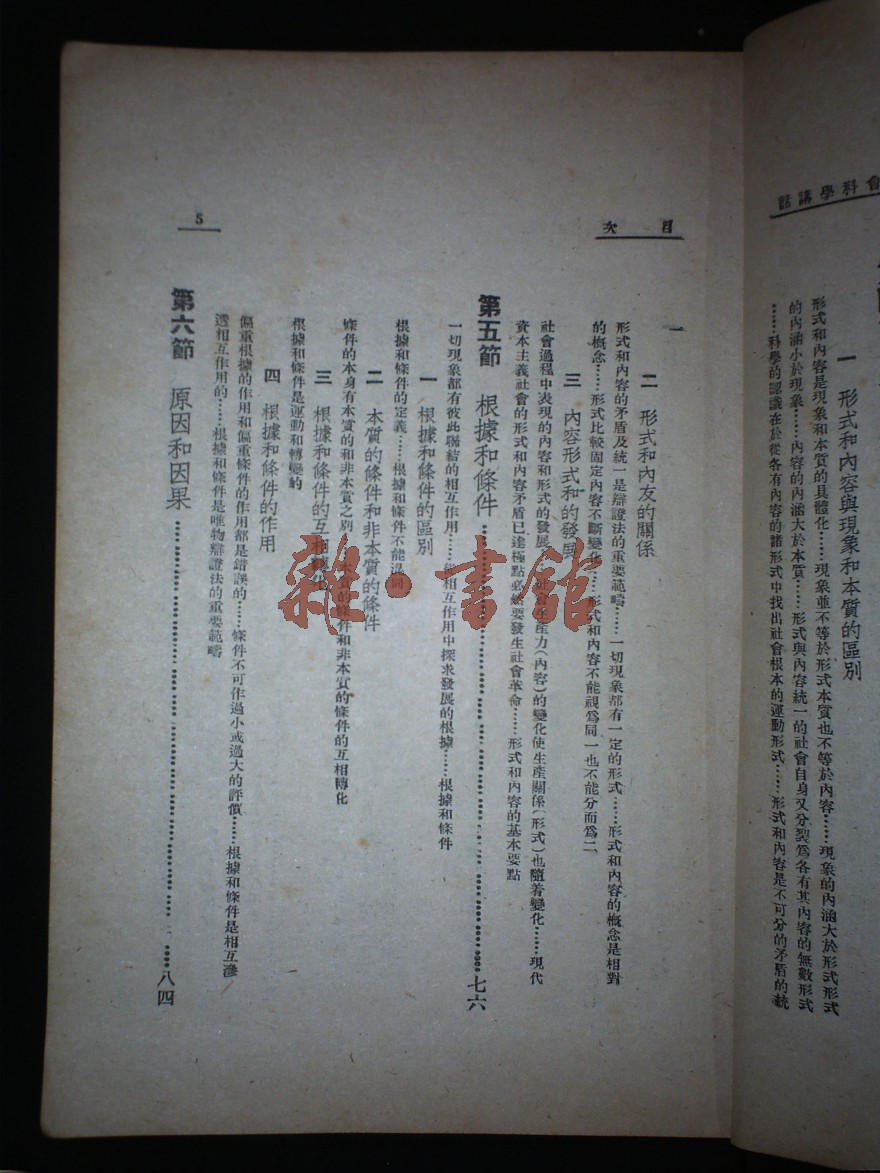 會科學講話
一 形式和內容與現象和本質的區別
形式和內容是現象和本質的具體化……現象並不等於形式本質也不等於內容……現象的內涵大於形式形式
的內涵小於現象……內容的內涵大於本質……形式與內容統一的社會自身又分裂爲各有其內容的無數形式
……科學的認識在於從各有內容的諸形式中找出社會根本的運動形式……形式和內容是不可分的矛盾的統
目 次
5
一
二 形式和內友的關係
形式和內容的矛盾及統一是辯證法的重要範疇……一切現象都有一定的形式……形式和內容的概念是相對
的概念……形式比較固定內容不斷變化……形式和內容不能視爲同一也不能分而爲二
三 內容形式和的發展
社會過程中表現的內容和形式的發展……社會生產力(內容)的變化使生產關係(形式)也隨着變化……現代
資本主義社會的形式和內容矛盾已達極點必然要發生社會革命……形式和內容的基本要點
第五節 根據和條件……七六
一切現象都有彼此聯結的相互作用……從相互作用中探求發展的根據……根據和條件
一 根據和條件的區別
根據和條件的定義……根據和條件不能混同
二 本質的條件和非本質的條件
條件的本身有本質的和非本質之別……本質的條件和非本質的條件的互相轉化
三 根據和條件的互相轉化
根據和條件是運動和轉變的
四 根據和條件的作用
偏重根據的作用和偏重條件的作用都是錯誤的……條件不可作過小或過大的評價……根據和條件是相互滲
透相互作用的……根據和條件是唯物辯證法的重要範疇
第六節 原因和因果……八四
雜·書館